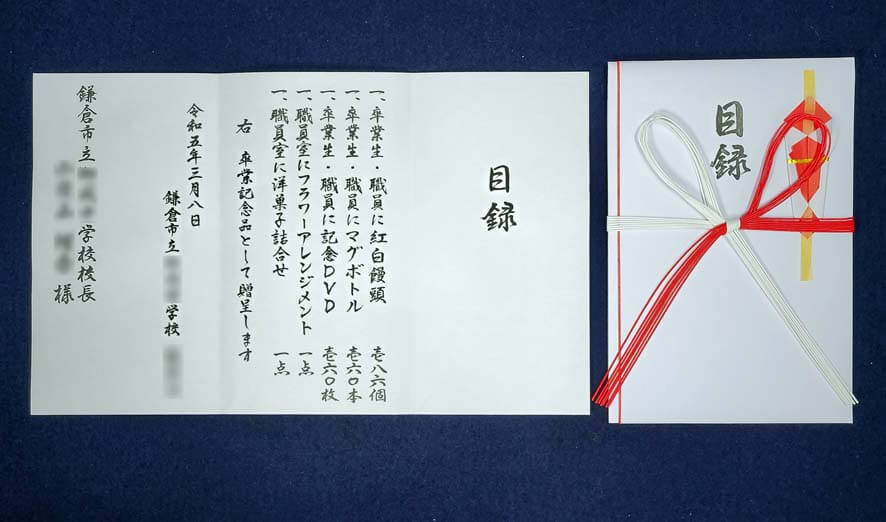 目録
一、卒業生・職員に紅白饅頭 壱八六個
一、卒業生・職員にマグボトル 壱六〇本
一、卒業生・職員に記念DVD 壱六〇枚
一、職員室にフラワーアレンジメント 一点
一、職員室に洋菓子詰合せ 一点
右 卒業記念品として贈呈します
令和五年三月八日
鎌倉市立 学校
鎌倉市立 学校校長
様
目録